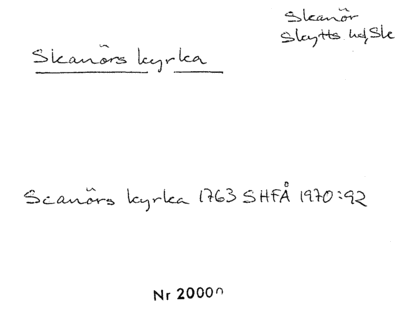 Skanör
Skytts hd, Sk
Skanörs kyrka
Scanörs kyrka 1763 SHFÅ 1970:92
Nr 2000